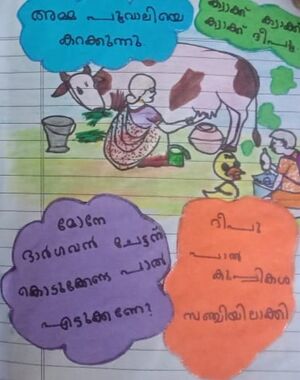 അമ്മ പൂവാലിയെ
കറക്കുന്നു.
ക്വാക്ക് ക്വാക്ക്
ക്വാക്ക് ദീപു
മോനേ
ഭാർഗവൻ ചേട്ടന്
കൊടുക്കേണ്ട പാൽ
എടുക്കണേ?
ദീപു
പാൽ
കുപ്പികൾ
സഞ്ചിയിലാക്കി